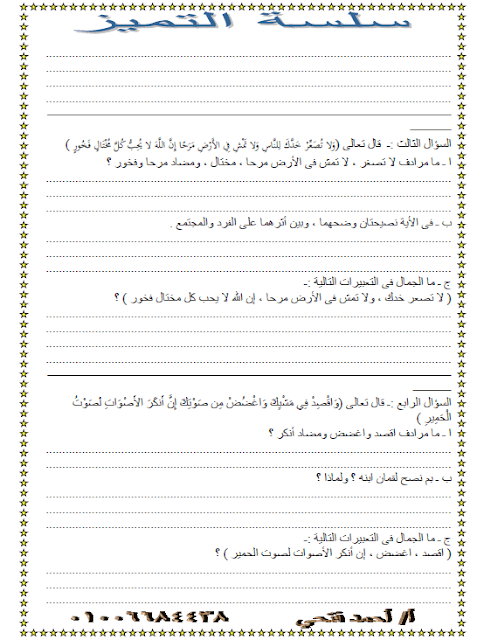 سلسة التميز
السؤال الثالث :ـ قال تعالى (وَلَا تُصَعِّرْ خَدَّكَ لِلنَّاسِ وَلَا تَمْشِ فِي الْأَرْضِ مَرَحًا إِنَّ اللَّهَ لَا يُحِبُّ كُلَّ مُخْتَالٍ فَخُورٍ )
ا ـ ما مرادف لا تصغر ، لا تمش فى الأرض مرحا ، مختال ، ومضاد مرحا وفخور ؟
ب ـ فى الأية نصيحتان وضحهما ، وبين أثرهما على الفرد والمجتمع .
ج ـ ما الجمال فى التعبيرات التالية :ـ
( لا تصعر خدك ، ولا تمش فى الأرض مرحا ، إن الله لا يحب كل مختال فخور ) ؟
السؤال الرابع :ـ قال تعالى (وَاقْصِدْ فِي مَشْيِكَ وَاغْضُضْ مِن صَوْتِكَ إِنَّ أَنكَرَ الْأَصْوَاتِ لَصَوْتُ
الْحَمِيرِ )
ا ـ ما مرادف اقصد واغضض ومضاد أنكر ؟
ب ـ بم نصح لقمان ابنه ؟ ولماذا ؟
ج ـ ما الجمال فى التعبيرات التالية :ـ
( اقصد ، اغضض ، إن أنكر الأصوات لصوت الحمير ) ؟
أ/ أحمد فتحي ٠١٠٠٦٦٨٤٤٣٨